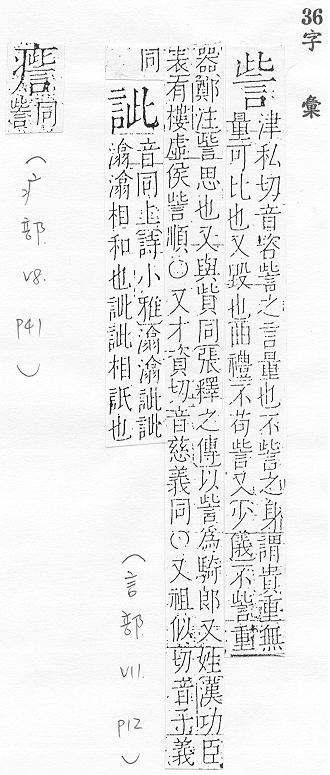 36
字彙
訾
津私切音咨訾之言量也不訾之身謂貴重無
量可比也又毀也曲禮不苟訾又少儀不訾重
器鄭注訾思也又與貲同張釋之傳以訾為騎郎又姓漢功臣
表有樓虛侯訾順〇又才資切音慈義同〇又祖似切音子義
同
訿
音同上詩小雅潝潝訿訿
潝潝相和也訿訿相詆也
(言部 V11. P12)
同
訾
(疒部 V8. P41)